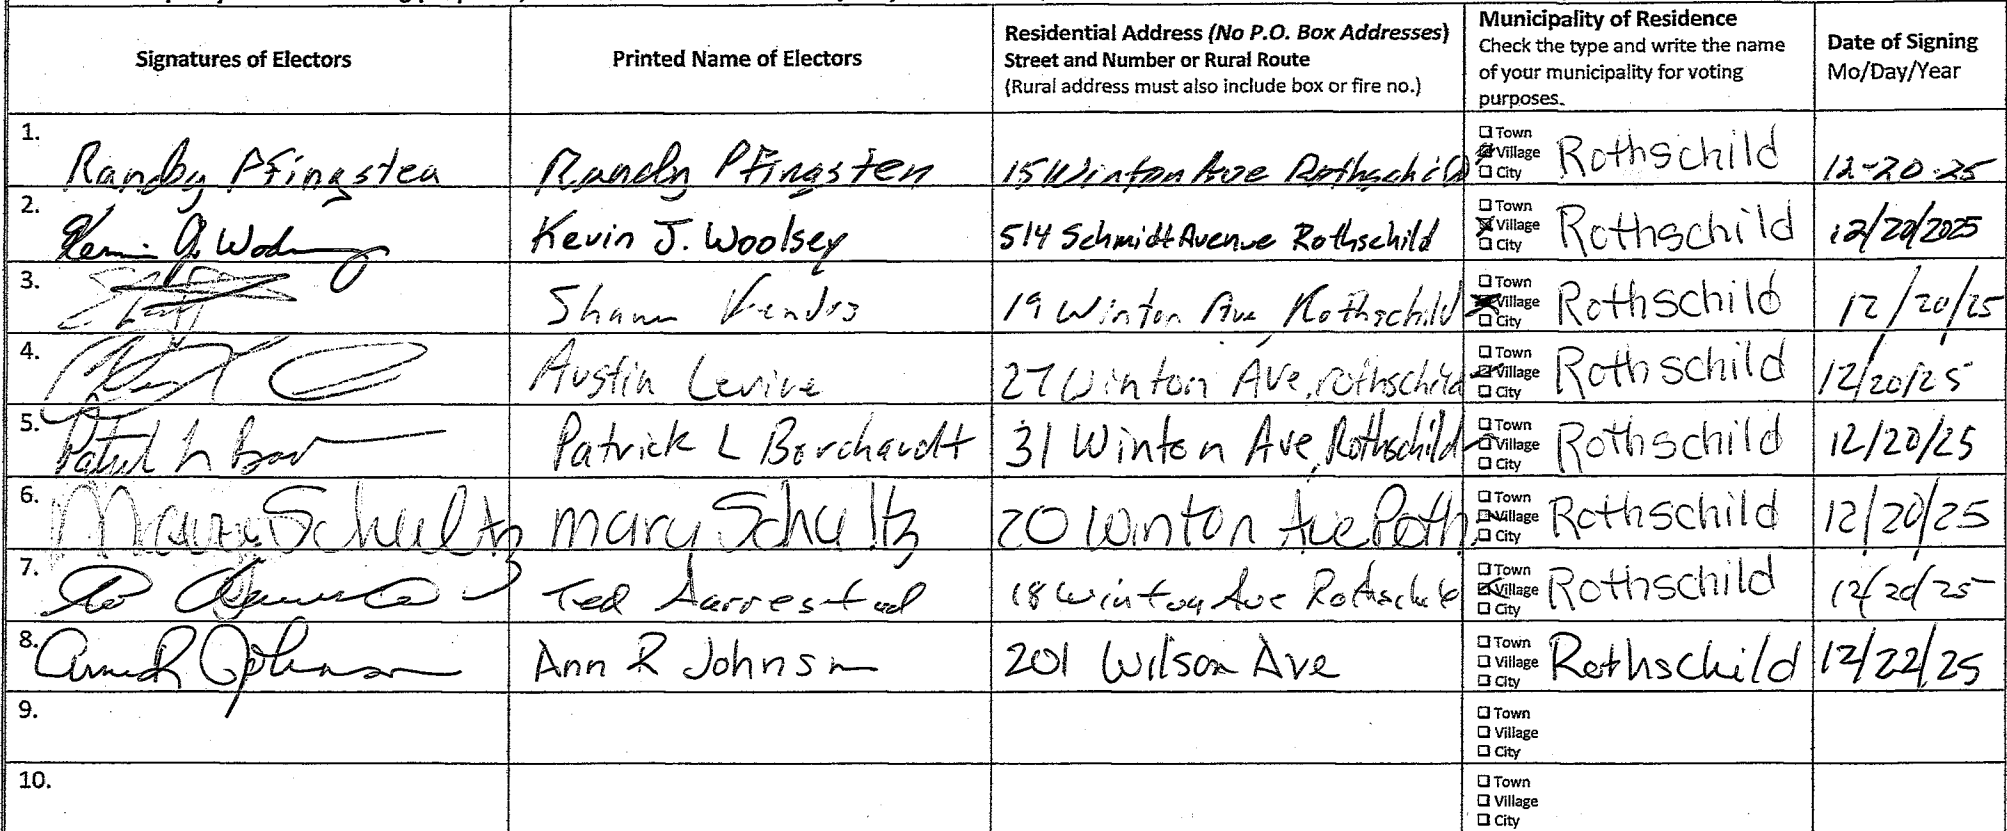 Signatures of Electors
Printed Name of Electors
Residential Address (No P.O. Box Addresses)
Street and Number or Rural Route
(Rural address must also include box or fire no.)
Municipality of Residence
Check the type and write the name
of your municipality for voting
purposes.
Date of Signing
Mo/Day/Year
1.
Randy Pfingsten
Randy Pfingsten
15 Winton Ave Rothschild
Town
Village
City
Rothschild
12-20-25
2.
Kevin J. Woolsey
514 Schmidt Avenue Rothschild
Town
Village
City
Rothschild
12/20/2025
3.
Shawn
19 Winton Ave Rothschild
Town
Village
City
Rothschild
12/20/25
4.
Austin Levine
27 Winton Ave, rothschild
Town
Village
City
Rothschild
12/20/25
5.
Patrick L Borchardt
31 Winton Ave, Rothschild
Town
Village
City
Rothschild
12/20/25
6.
Mary Schultz
mary Schultz
20 Winton Ave Roth
Town
Village
City
Rothschild
12/20/25
7.
Ted Aarrestad
18 Winton Ave Rothschild
Town
Village
City
Rothschild
12/20/25
8.
Ann R Johnson
Ann R Johnson
201 Wilson Ave
Town
Village
City
Rothschild
12/22/25
9.
Town
Village
City
10.
Town
Village
City